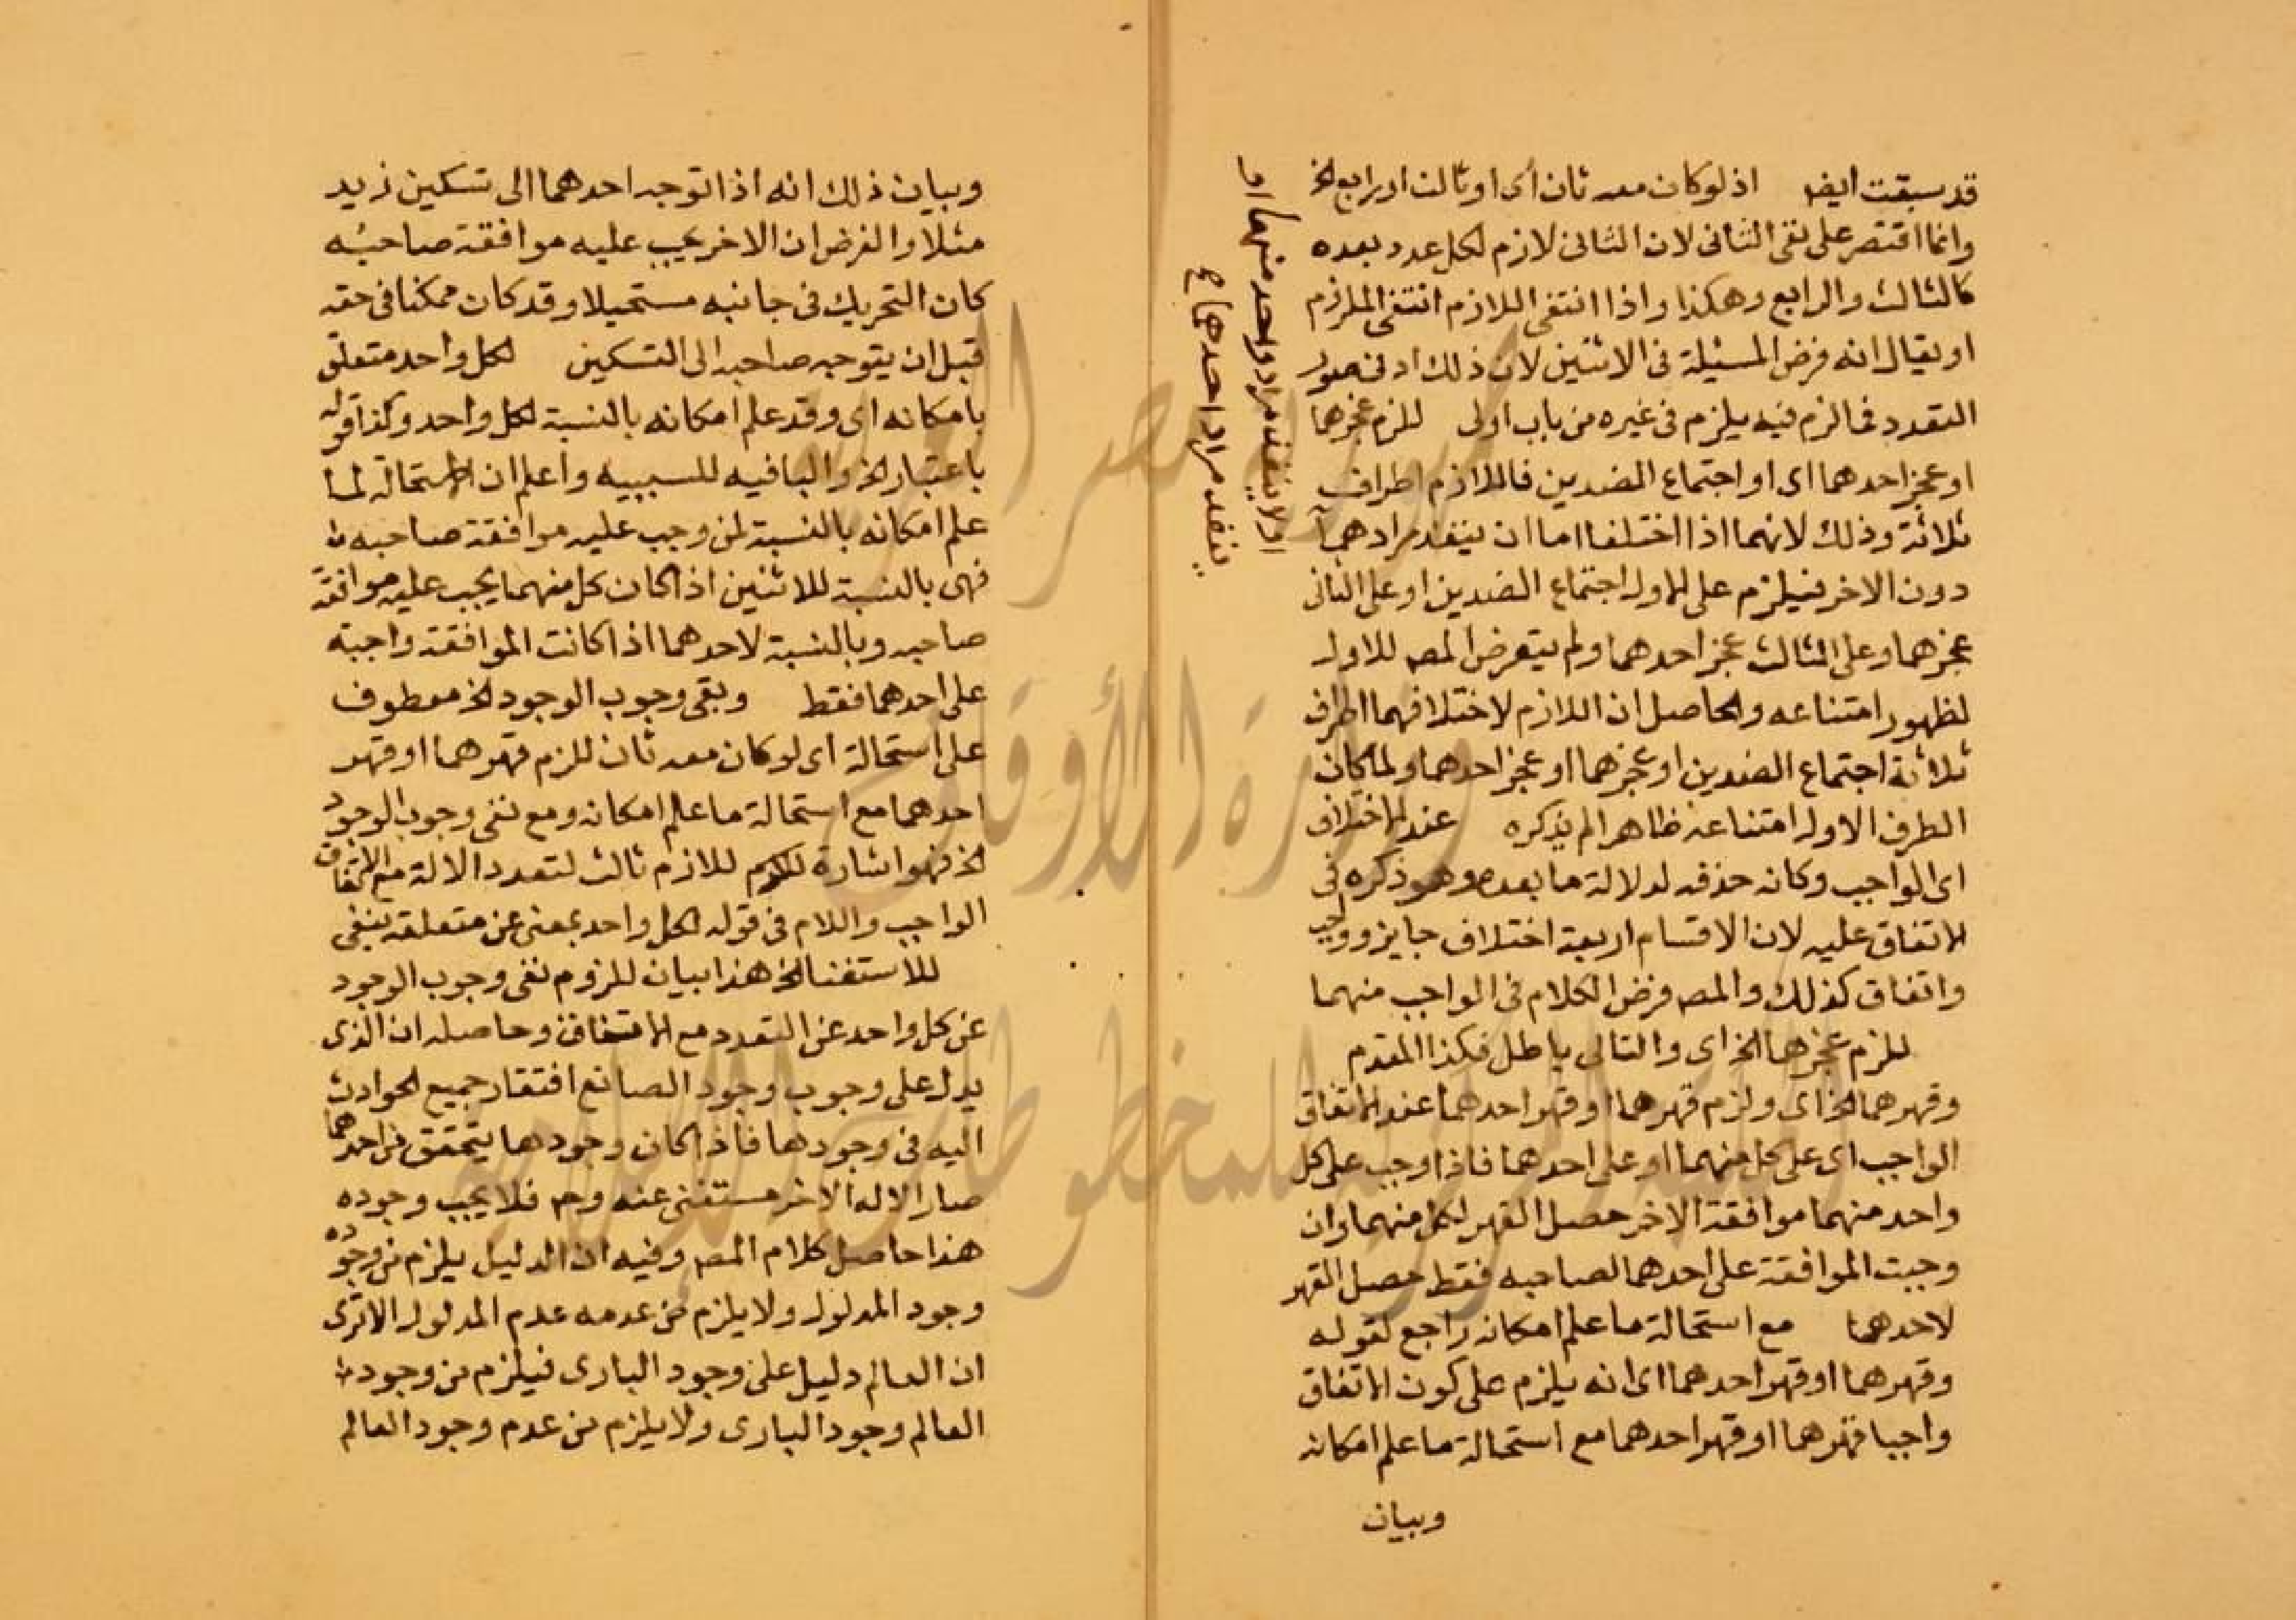 قد سبقت ايضا اذ لو كان معه ثان اى او ثالث او رابع الخ
وانما اقتصر على نفى الثانى لان الثانى لازم لكل عدد بعده
كالثالث والرابع وهكذا واذا انتفى اللازم انتفى الملزوم
او يقال انه فرض المسئلة فى الاثنين لان ذلك ادنى صور
التعدد فما لزم فيه يلزم فى غيره من باب اولى للزم عجزهما
او عجز احدهما اى او اجتماع الضدين فاللازم اطراف
ثلاثة وذلك لانهما اذا اختلفا اما ان ينفذ مرادهما
دون الاخر فيلزم على الاول اجتماع الضدين او على الثانى
عجزهما وعلى الثالث عجز احدهما ولم يتعرض المصه للاول
لظهور امتناعه والحاصل ان اللازم لاختلافهما اطراف
ثلاثة اجتماع الضدين او عجزهما او عجز احدهما ولما كان
الطرف الاول امتناعه ظاهرا لم يذكره عند الاختلاف
اى الواجب وكانه حذفه لدلالة ما بعده وهو ذكره فى
الاتفاق عليه لان الاقسام اربعة اختلاف جايز وواجب
واتفاق كذلك والمصه فرض الكلام فى الواجب منهما
للزم عجزهما الخ اى والتالى باطل فكذا المقدم
وقهرهما الخ اى ولزم قهرهما او قهر احدهما عند الاتفاق
الواجب اى على كل منهما او على احدهما فاذا وجب على كل
واحد منهما موافقة الاخر حصل القهر لكل منهما وان
وجبت الموافقة على احدهما لصاحبه فقط حصل القهر
لاحدهما مع استحالة ما علم امكانه راجع لقوله
وقهرهما او قهر احدهما اى انه يلزم على كون الاتفاق
واجبا قهرهما او قهر احدهما مع استحالة ما علم امكانه
وبيان
او لا ينفذ مراد واحد منهما او
ينفذ مراد احدهما
وبيان ذلك انه اذا توجه احدهما الى تسكين زيد
مثلا والفرض ان الاخر يجب عليه موافقة صاحبه
كان التحريك فى جانبه مستحيلا وقد كان ممكنا فى حقه
قبل ان يتوجه صاحبه الى التسكين لكل واحد متعلق
بامكانه اى وقد علم امكانه بالنسبة لكل واحد وكذا قوله
باعتبار الخ والبا فيه للسببيه واعلم ان استحالة لما
علم امكانه بالنسبة لمن وجب عليه موافقة صاحبه
فهى بالنسبة للاثنين اذا كان كل منهما يجب عليه موافقة
صاحبه وبالنسبة لاحدهما اذا كانت الموافقة واجبة
على احدهما فقط ونفى وجوب الوجود الخ معطوف
على استحالة اى لو كان معه ثان للزم قهرهما او قهر
احدهما مع استحالة ما علم امكانه ومع نفى وجوب الوجود
الخ فهو اشارة للازم ثالث لتعدد الالة مع الاتفاق
الواجب واللام فى قوله لكل واحد بمعنى عن متعلقه بنفى
للاستغنا الخ هذا بيان للزوم نفى وجوب الوجود
عن كل واحد عن التعدد مع الاتفاق وحاصله ان الذى
يدل على وجوب وجود الصانع افتقار جميع الحوادث
اليه فى وجودها فاذا كان وجودها يتحقق من احدهما
صار الاله الاخر مستغنى عنه وح فلا يجب وجوده
هذا حاصل كلام المصه وفيه ان الدليل يلزم من وجوده
وجود المدلول ولا يلزم من عدمه عدم المدلول الا ترى
ان العالم دليل على وجود البارى فيلزم من وجود
العالم وجود البارى ولا يلزم من عدم وجود العالم